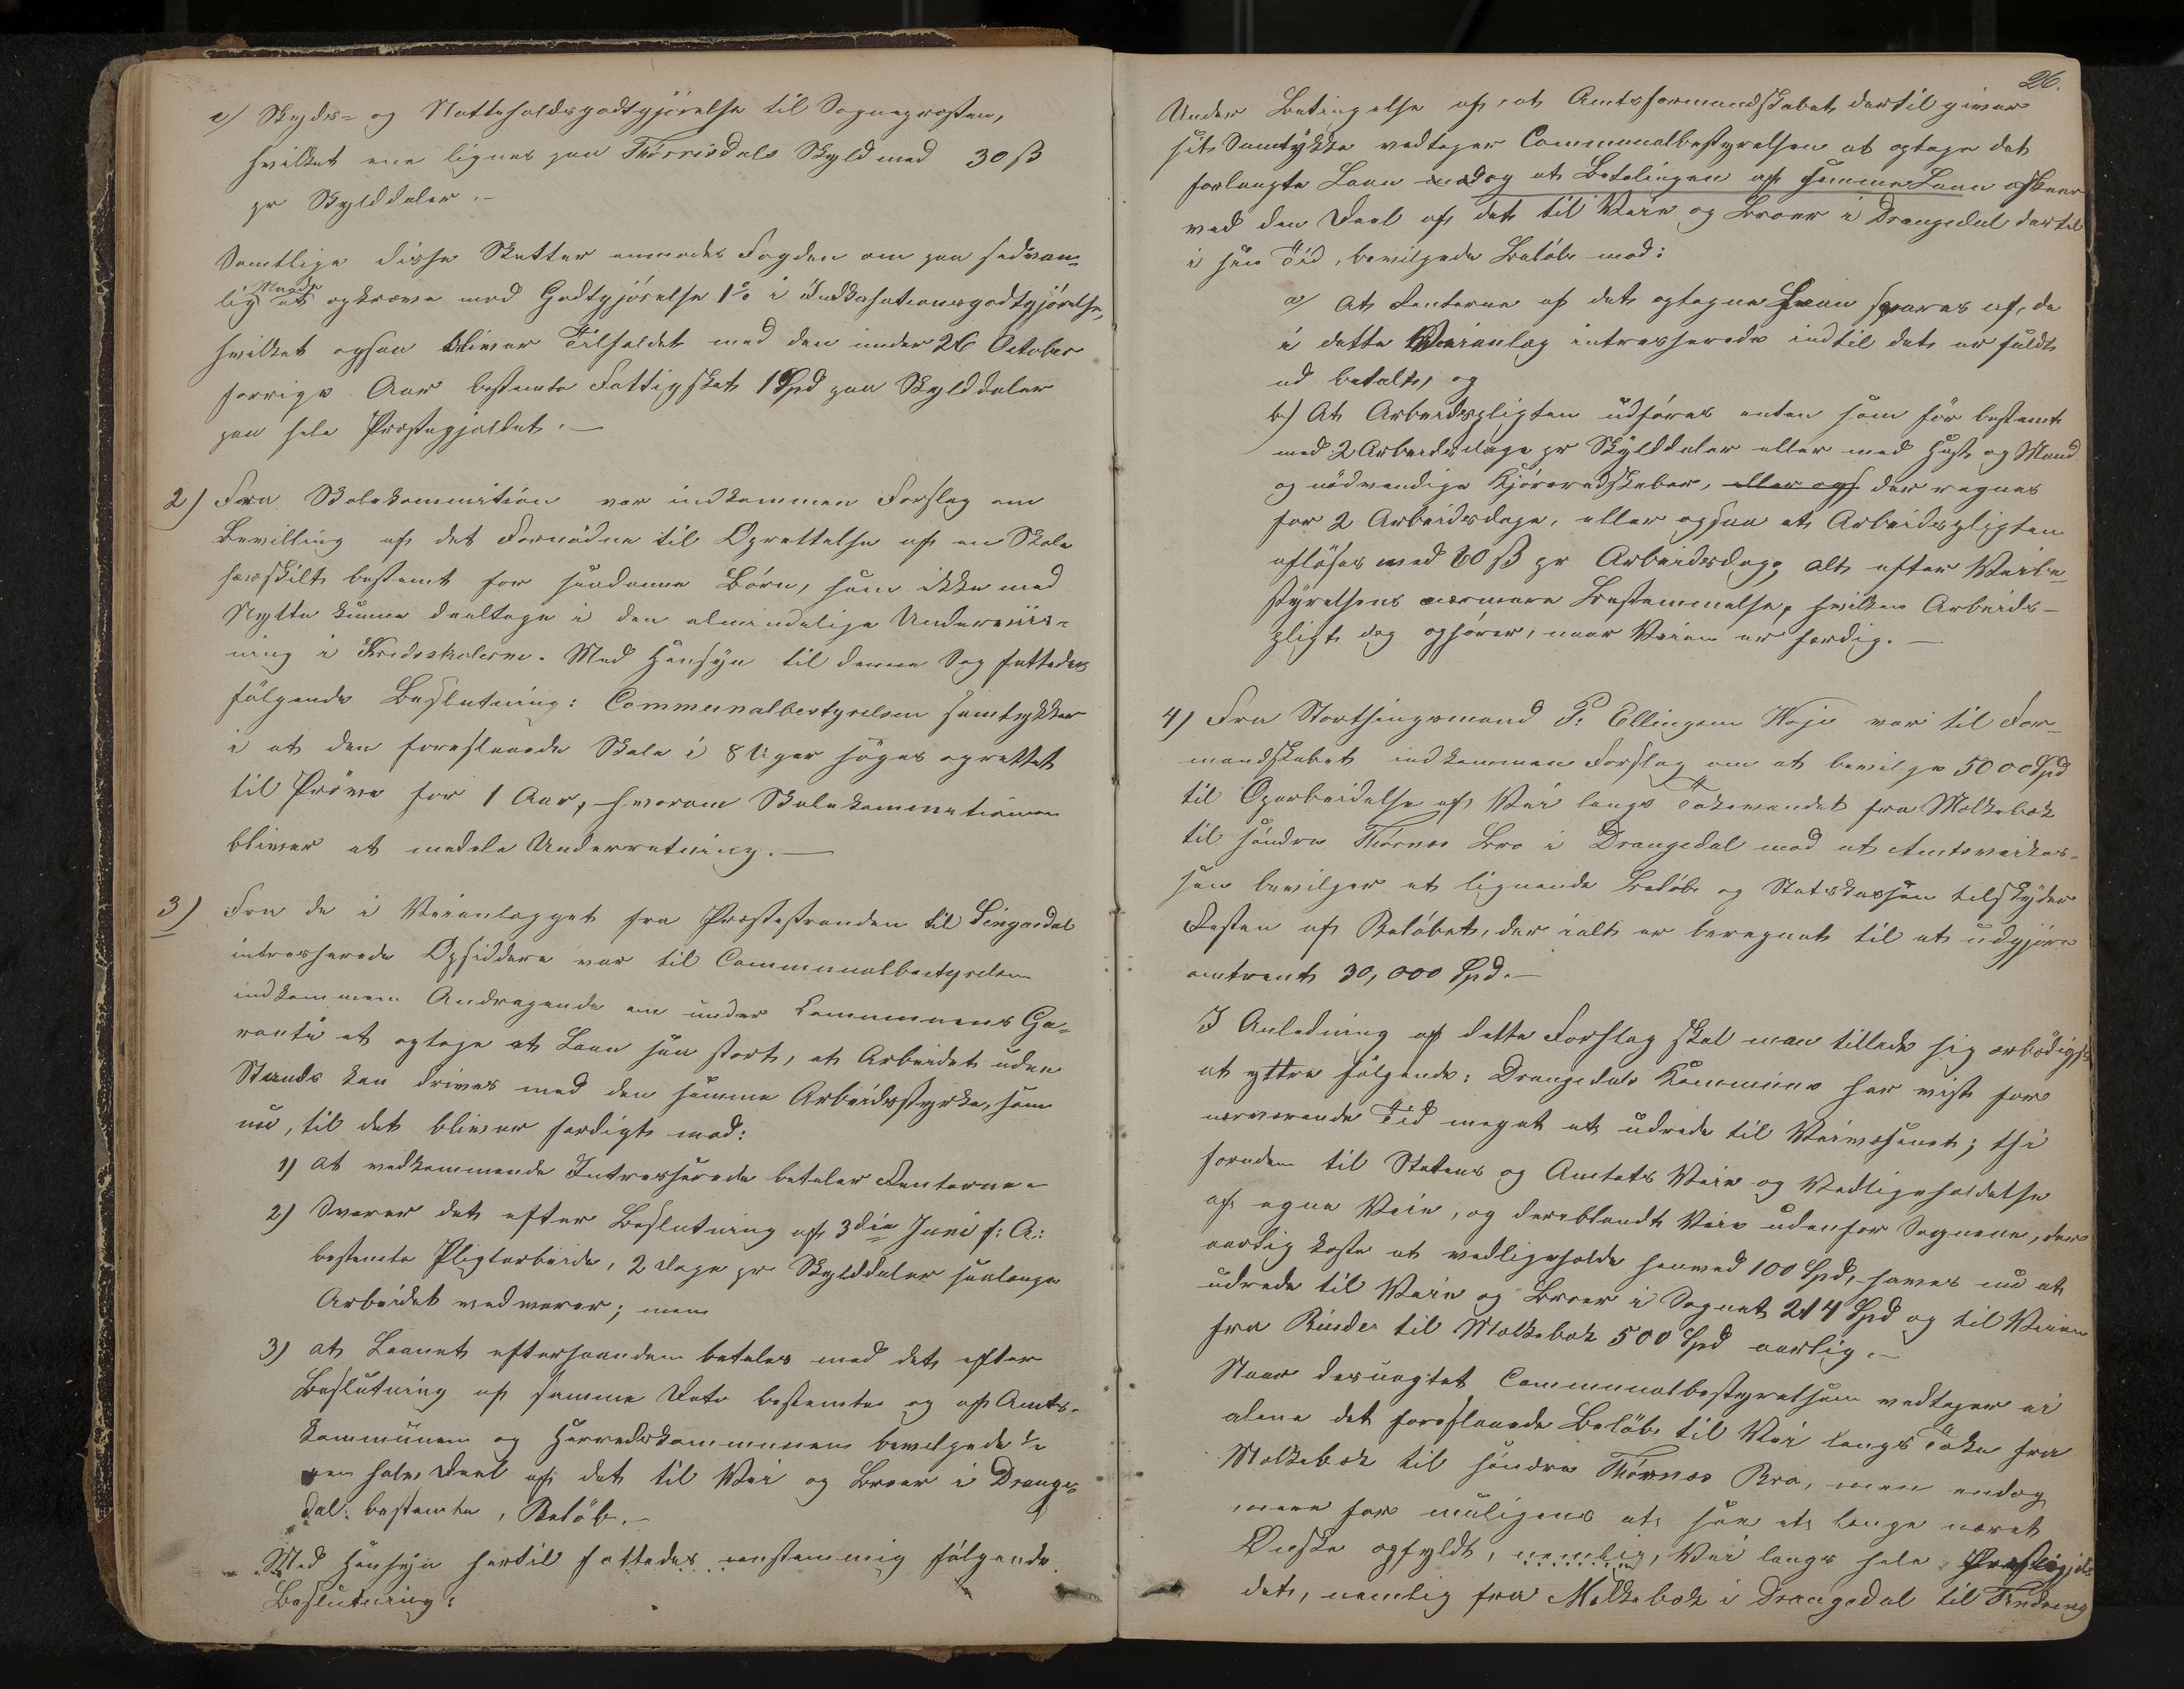 e) Skyds- og Natteholdsgodtgjörelse til Sogneprosten,
hvilket ene lignes paa Thörrisdals Skyld med 30 ß
pr Skylddaler.-
Samtlige disse Skatter anmodes Fogden om paa sedvan-
lig Maade at opkræve mod Godtgjörelse 1% i Indkasationsgodtgjörelse,
hvilket ogsaa bliver Tilfaldet med den under 26 October
forrige Aar bestemte Fattigskat 1 Spd paa Skylddaler
paa hele Prestegjaldet.-
2) Fra Skolekommission var indkommen Forslag om
Bevilling af det Fornödne til Oprettelse af en Skole
særskilt bestemt for saadanne Börn, som ikke med
Nytte kunne deeltage i den almindelige Underviis-
ning i Kredsskolerne. Med Hensyn til denne Sag fattedes
fölgende Beslutning: Communalbestyrelsen samtykker
i at den foreslaaede Skole i 8 Uger söges oprettet
til Pröve for 1 Aar, hvorom Skolekommissionen
bliver at meddele Underretning.-
3) Fra de i Veianlægget fra Prestestranden til Lingaasdal
intresserede Opsiddere var til Communalbestyrelsen
indkommen Andragende om under Communens Ga-
ranti at optage et Laan saa stort, at Arbeidet uden
Stands kan drives med den samme Arbeidsstyrke, som
nu, til det bliver færdigt mod:
1) at vedkommende Intresserede betaler Renterne.
2) Svarer det efter Beslutning af 3die Juni f: A:
bestemte Pligtarbeide, 2 Dage pr Skylddaler saalænge
Arbeidet vedvarer; men
3) at Laanet efterhaanden betales med det efter
Beslutning af samme Dato bestemte og af Amts-
kommunen og Herredskommunen bevilgede 1/2
en halv Deel af det til Vei og Broer i Drange-
dal bestemte, Belöb.-
Med Hensyn hertil fattedes eenstemmig fölgende
Beslutning:
26.
Under Betingelse af, at Amtsformandskabet dertil giver
sit Samtykke vedtager Communalbestyrelsen at optage det
forlangte Laan og at Betalingen af samme Laan afskeer
ved den Deel af det til Veie og Broer i Drangedal dertil
i sin Tid, bevilgede Belöb mod:
a) At Renterne af det optagne Laan svares af, de
i dette Veianlæg intresserede indtil det er fuldt
ud betalt, og
b) At Arbeidspligten udföres enten som för bestemt
med 2 Arbeidsdage pr Skylddaler eller med Hest og Mand
og nödvendige Kjöreredskaber, eller ogs der regnes
for 2 Arbeidsdage, eller ogsaa at Arbeidspligten
aflöses med 60 ß pr Arbeidsdag; alt efter Veibe-
styrelsens nærmere Bestemmelse, hvilken Arbeids-
pligt dog ophörer, naar Veien er færdig.-
4) Fra Storthingsmand P. Ellingsen Hoje var til For-
mandskabet indkommen Forslag om at bevilge 5000 Spd
til Oparbeidelse af Vei langs Tokevandet fra Molkebæk
til söndre Thörnæs Bro i Drangedal mod at Amtsveikas-
sen bevilger et lignende Belöb og Statskassen tilskyder
Resten af Belöbet, der ialt er beregnet til at udgjöre
omtrent 30,000 Spd.-
I Anledning af dette Forslag skal man tillade sig ærbödigst
at yttre fölgende: Drangedals Kommune har vist for
nærværende Tid meget at udrede til Veivæsenet; thi
foruden til Statens og Amtets Veie og Vedligeholdelse
af egne Veie, og deriblandt Veie udenfor Sognene, der
aarlig koste at vedligeholde henved 100 Spd, haves nu at
udrede til Veie og Broer i Sognet 214 Spd og til Veien
fra Rinde til Molkebæk 500 Spd aarlig.-
Naar desuagtet Communalbestyrelsen vedtager ei
alene det foreslaaede Belöb til Vei langs Toke fra
Molkebæk til söndre Thörnæs Bro, men endog
mere for muligens at faa et længe næret
Önske opfyldt, nemlig, Vei langs hele Prestegjæl-
det, nemlig fra Molkebæk i Drangedal til